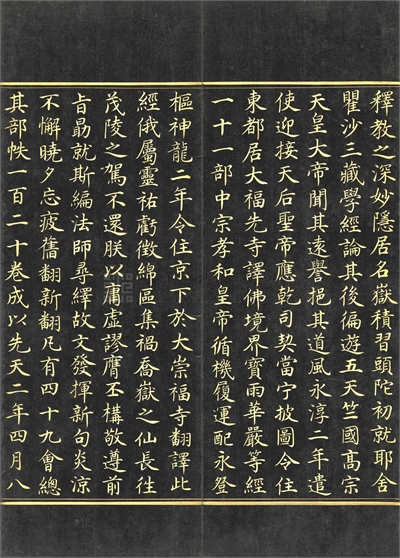 釋教之深妙隱居名嶽積習頭陀初就耶舍
瞿沙三藏學經論其後徧遊五天竺國高宗
天皇大帝聞其遠譽挹其道風永淳二年遣
使迎接天后聖帝應乾司契當宁披圖令住
東都居大福先寺譯佛境界寶雨華嚴等經
一十一部中宗孝和皇帝循機履運配永登
樞神龍二年令住京下於大崇福寺翻譯此
經俄屬靈祐虧徵綿區集禍喬嶽之仙長往
茂陵之駕不還朕以庸虛謬膺丕構敬遵前
旨勗就斯編法師尋繹故文發揮新句炎涼
不懈曉夕忘疲舊翻新翻凡有四十九會總
其部帙一百二十卷成以先天二年四月八